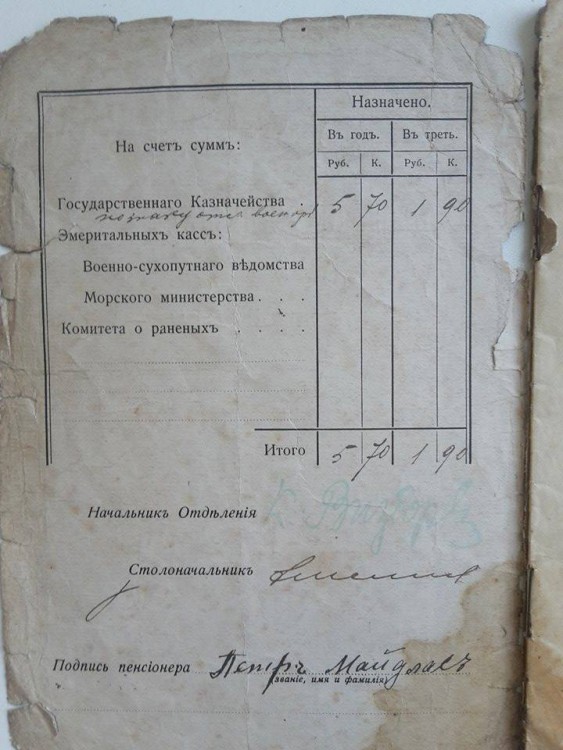 Назначено.
На счетъ суммъ:
Въ годъ. Въ треть.
Руб. К. Руб. К.
Государственнаго Казначейства . 5 70 1 90
Эмеритальныхъ кассъ:
Военно-сухопутнаго вѣдомства
Морского министерства . . .
Комитета о раненыхъ . . . .
Итого 5 70 1 90
Начальникъ Отдѣленія
Столоначальникъ
Подпись пенсіонера Петръ
(званіе, имя и фамилія)